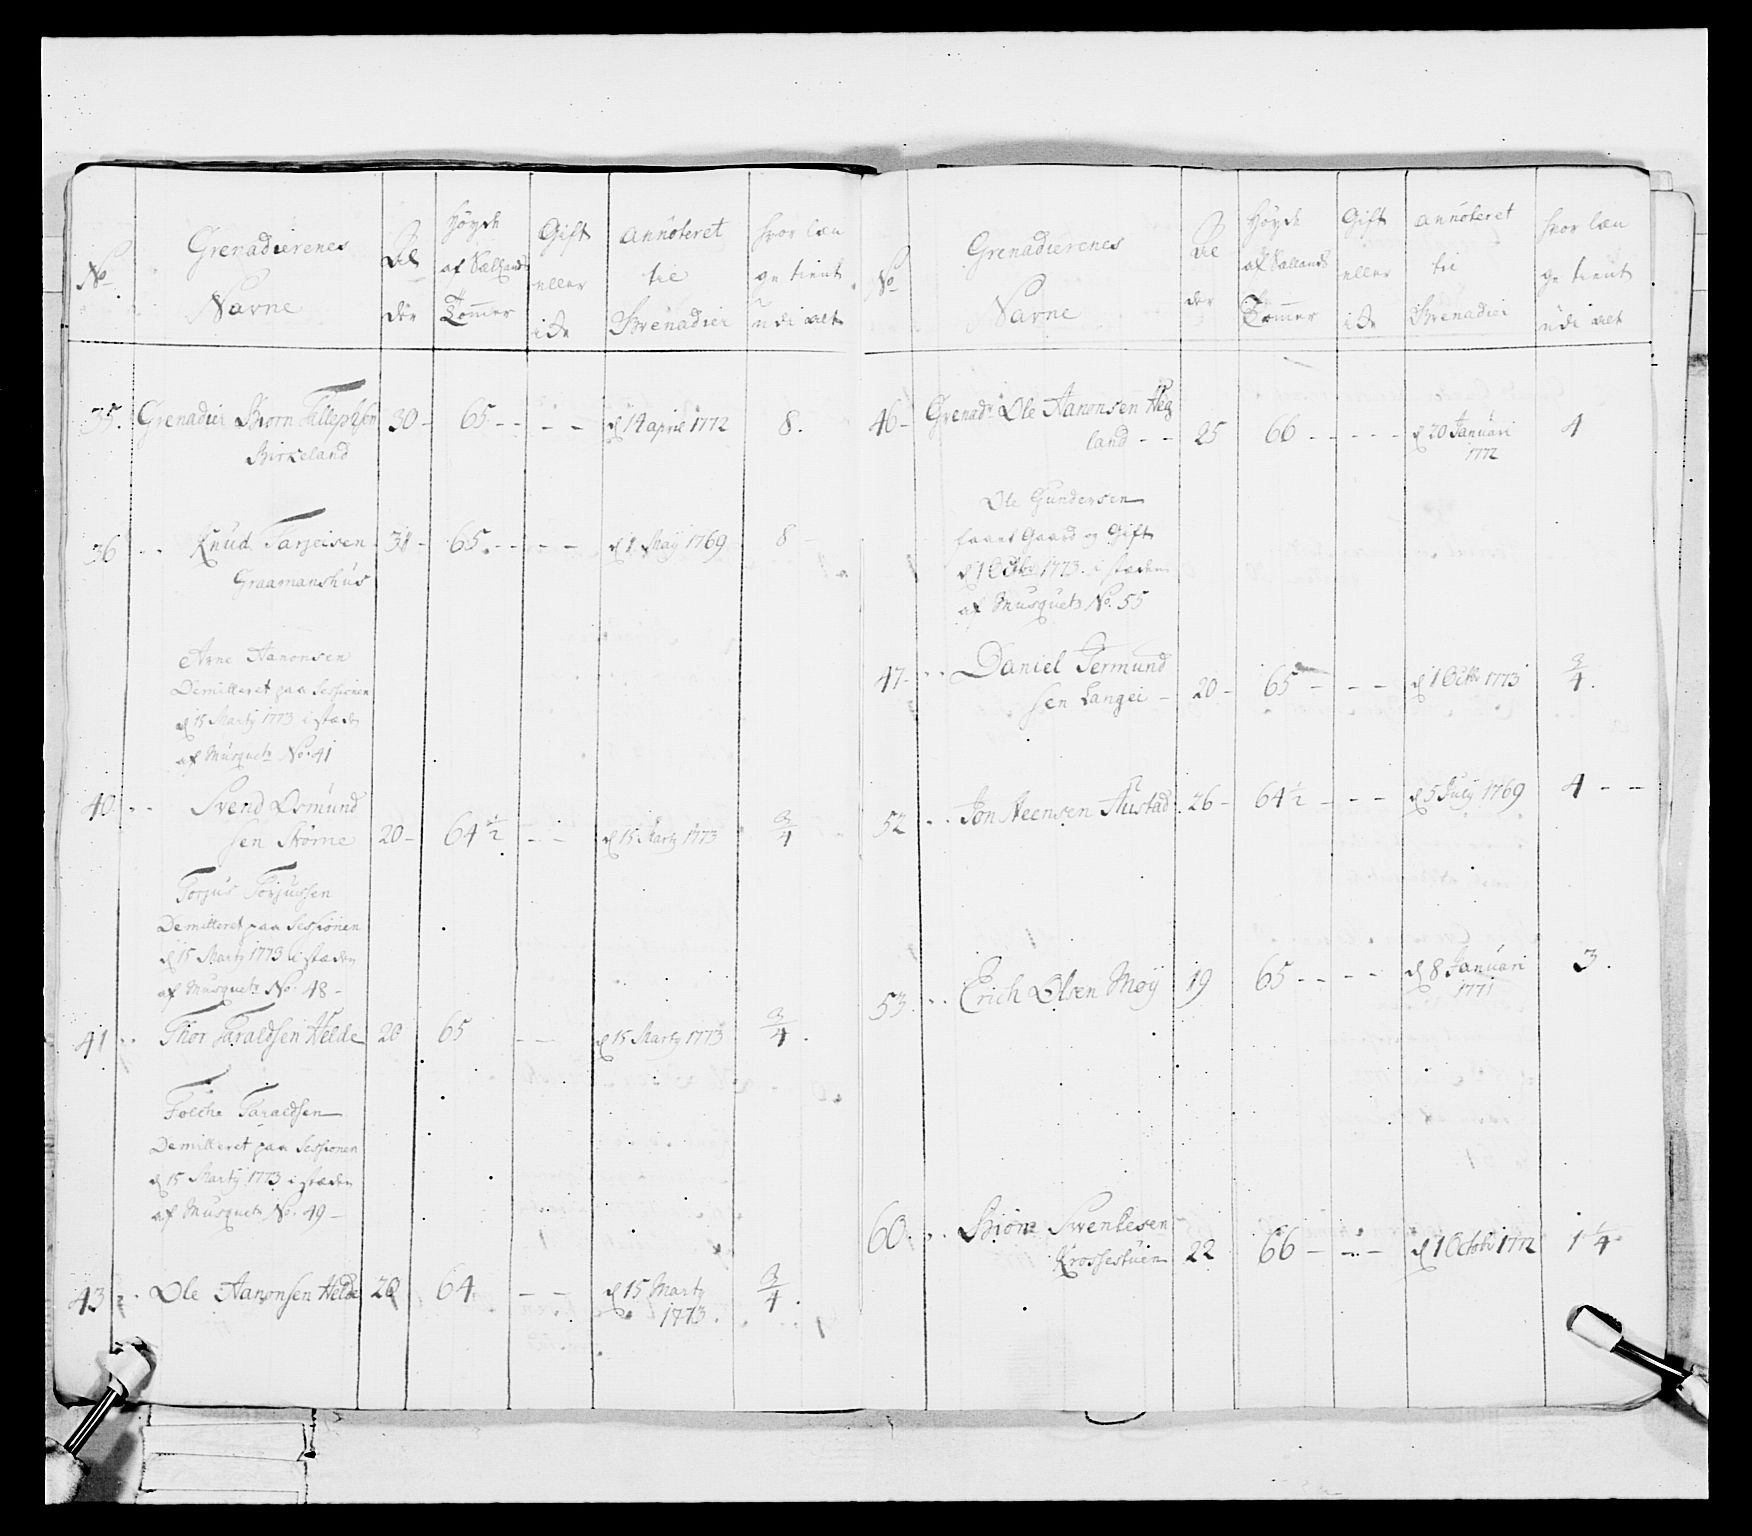 No Grenadierenes Navne Al der Høyde af Sællands Tommer Gift eller ide annoteret til Grenadier hvor læn ge tient udi alt
35. Grenadier Biorn Tellephsen 30 - 65 - - - - d 14 april 1772 8.
Birkeland
36 - - Knud Tarjeisen 31 - 65. - - - - d 1 May 1769 8 -
Graamanshus
Arne Aanonsen
Demitteret paa Sessionen
d 15 Marty 1773 i stæden
af Musquetr No. 41
40. - - Svend Osmund
sen Størne 20 - 64 ½ - - d 15 Marty 1773 ¾
Torjus Torjussen
Demitteret paa Sessionen
d 15 Marty 1773 i stæden
af Musquetr No. 48 -
41 - - Thor Taraldsen Helde 20 65 - - d 15 Marty 1773 ¾.
Folche Taraldsen
Demitteret paa Sessionen
d 15 Marty 1773 i stæden
af Musquetr No. 49 -
43 - Ole Aanonsen Helde 20 64 - - d 15 Marty ¾.
1773.
No Grenadierenes Navne Al der Høyde af Sællands Tommer Gift eller ide annoteret til Grenadier hvor læn ge tient udi alt
46 - Grenadr Ole Aanonsen Heg
land - - 25 66 - - - - - d 20 Januari 4
1772
Ole Gundersen
faaet Gaard og Gift
d 1 Octbr 1773. i stæden
af Musquetr No. 55
47 - - - Daniel Germund
sen Langei - 20 - 65 - - - d 1 Octbr 1773 ¾.
52 - - Jon Steensen Austad. 26 - 64 ½ - - - d 5 July 1769 4 - -
53. - - Erich Olsen Moy 19 65 - - - - d 8 Januari 3.
1771
60. - - Biørn Swenkesen
Krossestuen 22 66 - - - d 1 Octobr 1772 1 ¼